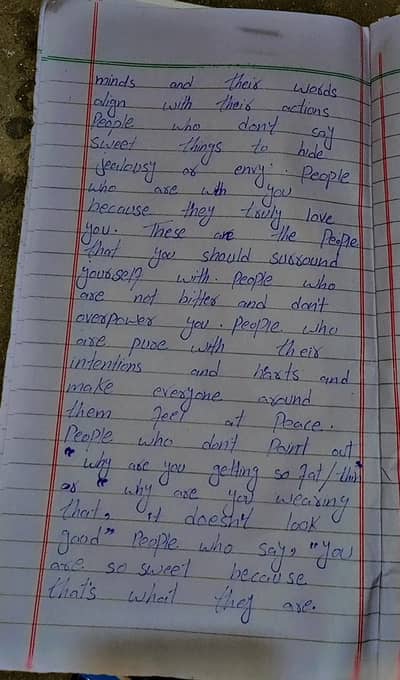 minds and their words
align with their actions
People who don't say
sweet things to hide
Jealousy or envy. People
who are with you
because they truly love
you. These are the People
that you should surround
yourself with. People who
are not bitter and don't
overpower you. People who
are pure with their
intentions and harts and
make everyone around
them feel at Peace.
People who don't Point out
"why are you getting so fat/thin"
or "why are you wearing
that, it doesn't look
good" People who say, "you
are so sweet because
that's what they are.